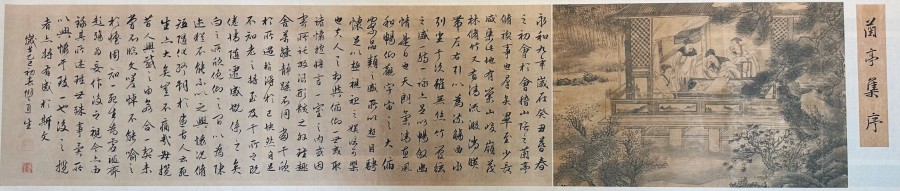 蘭亭集序
永和九年歲在癸丑暮春
之初會于會稽山陰之蘭亭
脩禊事也羣賢畢至少長
咸集此地有崇山峻嶺茂
林脩竹又有清流激湍暎
帶左右引以為流觴曲水
列坐其次雖無絲竹管絃
之盛一觴一詠亦足以暢敘幽
情是日也天朗氣清惠風
和暢仰觀宇宙之大俯
察品類之盛所以遊目騁
懷足以極視聽之娛信可樂
也夫人之相與俯仰一世或取
諸懷抱悟言一室之內或因
寄所託放浪形骸之外雖趣
舍萬殊靜躁不同當其欣
於所遇暫得於己快然自足
不知老之將至及其所之既
倦情隨事遷感慨係之矣
向之所欣俛仰之間以為陳
迹猶不能不以之興懷況脩
短隨化終期於盡古人云死
生亦大矣豈不痛哉每攬
昔人興感之由若合一契未
嘗不臨文嗟悼不能喻之
於懷固知一死生為虛誕齊
彭殤為妄作後之視今亦由
錄其所述雖世殊事異所
以興懷其致一也後之攬
者亦將有感於斯文